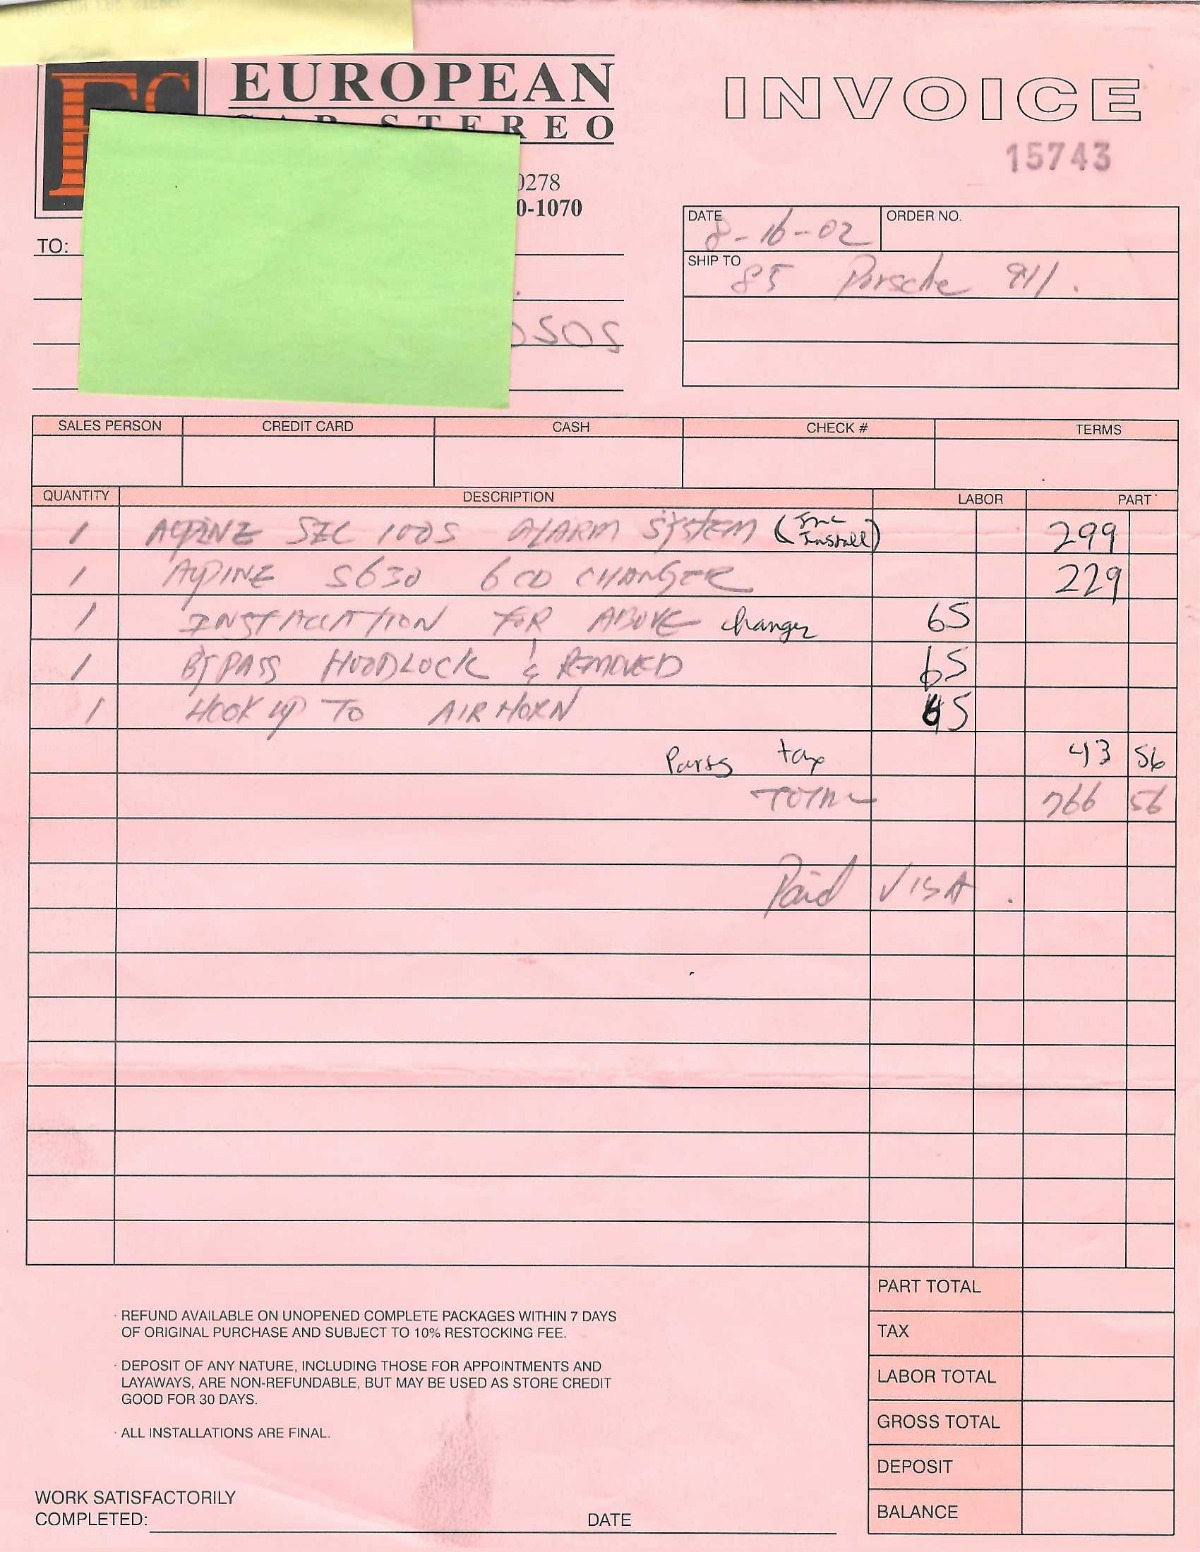 EUROPEAN
CAR STEREO
INVOICE
15743
0278
0-1070
TO:
DATE 8-16-02 ORDER NO.
SHIP TO 85 Porsche 911.
SALES PERSON CREDIT CARD CASH CHECK # TERMS
QUANTITY DESCRIPTION LABOR PART
1 ALPINE SEC 100S ALARM SYSTEM (Inc Install) 299
1 ALPINE S630 6 CD CHANGER 229
1 INSTALLATION FOR ABOVE changer 65
1 BYPASS HOODLOCK & REMOVED 65
1 HOOK UP TO AIR HORN 65
Parts tax 43 56
TOTAL 766 56
Paid VISA.
PART TOTAL
TAX
LABOR TOTAL
GROSS TOTAL
DEPOSIT
BALANCE
· REFUND AVAILABLE ON UNOPENED COMPLETE PACKAGES WITHIN 7 DAYS
OF ORIGINAL PURCHASE AND SUBJECT TO 10% RESTOCKING FEE.
· DEPOSIT OF ANY NATURE, INCLUDING THOSE FOR APPOINTMENTS AND
LAYAWAYS, ARE NON-REFUNDABLE, BUT MAY BE USED AS STORE CREDIT
GOOD FOR 30 DAYS.
· ALL INSTALLATIONS ARE FINAL.
WORK SATISFACTORILY
COMPLETED: DATE